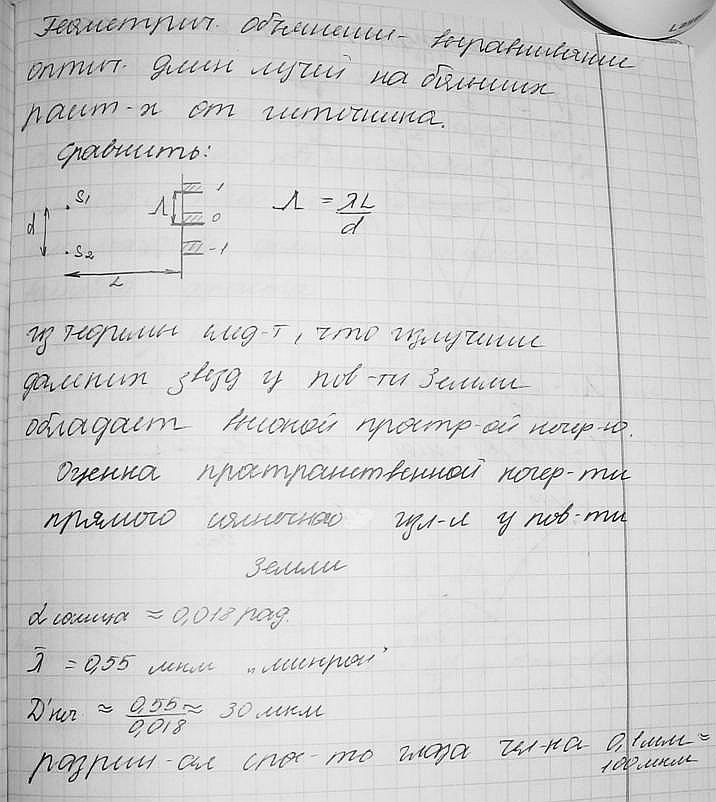 Геометрич. объяснение - выравнивание
оптич. длин лучей на больших
раст-х от источника.
Сравнить:
S1
Λ
1
d
0
S2
-1
L
Λ = λL/d
из теоремы след-т, что излучение
далеких звезд у пов-ти Земли
обладает высокой простр-ой когер-ю.
Оценка пространственной когер-ти
прямого солнечного изл-я у пов-ти
Земли
α солнца ≈ 0,018 рад.
λ̄ = 0,55 мкм
D'ког ≈ 0,55/0,018 ≈ 30 мкм
разреш-ая спос-ть глаза чел-ка 0,1мм =
100мкм